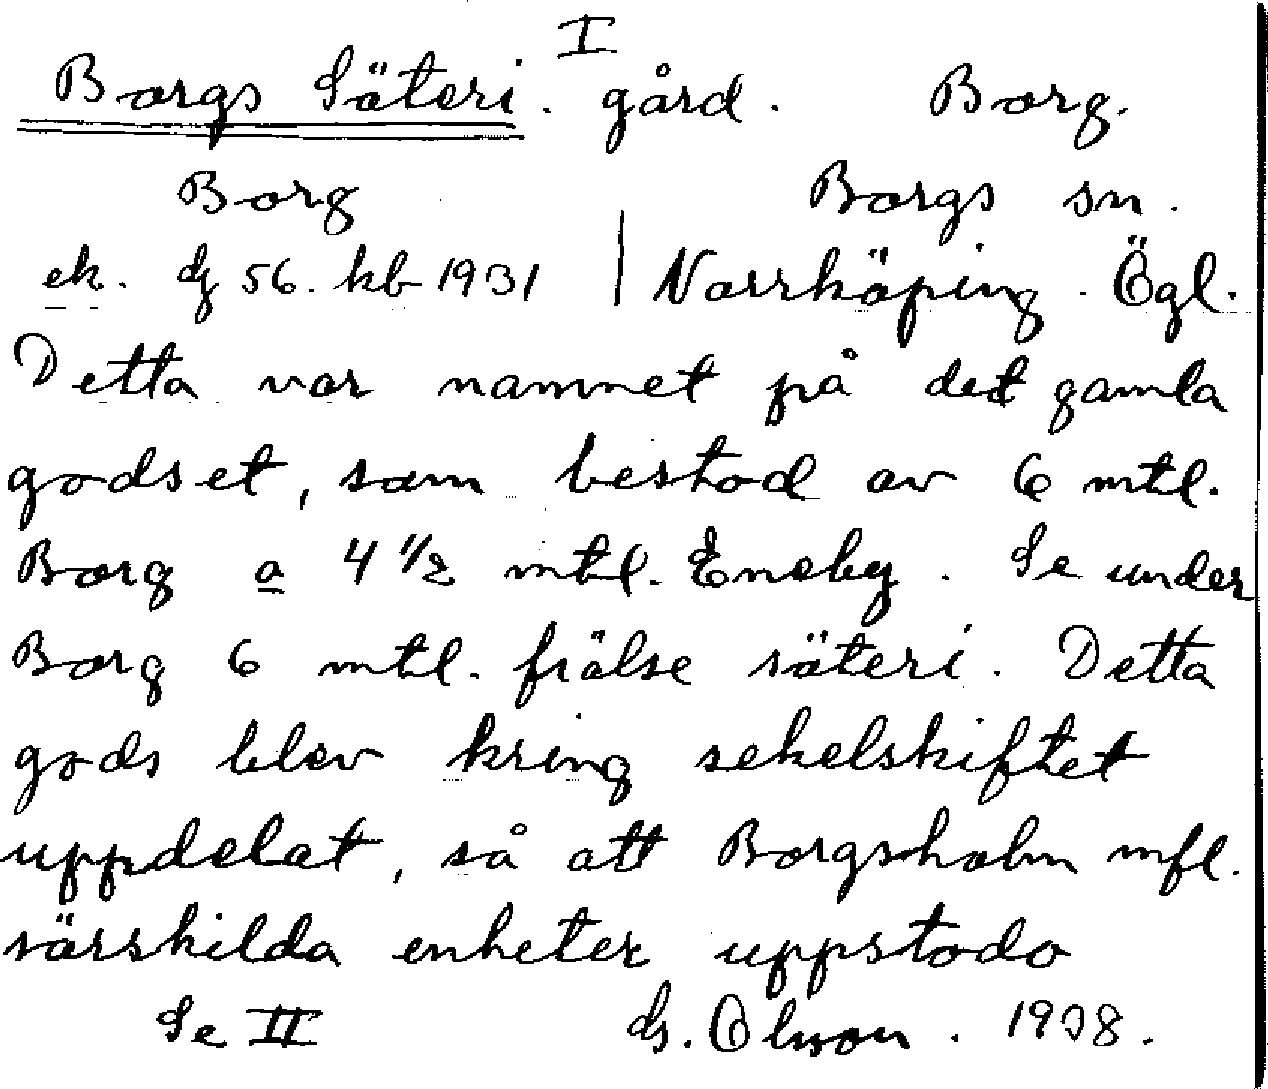 I
Borgs Säteri. gård. Borg.
Borg Borgs sn.
ek. 56. kb 1931 | Norrköping. Ögl.
Detta var namnet på det gamla
godset, som bestod av 6 mtl.
Borg a 4 1/2 mtl. Eneby. Se under
Borg 6 mtl. frälse säteri. Detta
gods blev kring sekelskiftet
uppdelat, så att Borgsholm mfl.
särskilda enheter uppstodo
Se II Olsson. 1938.